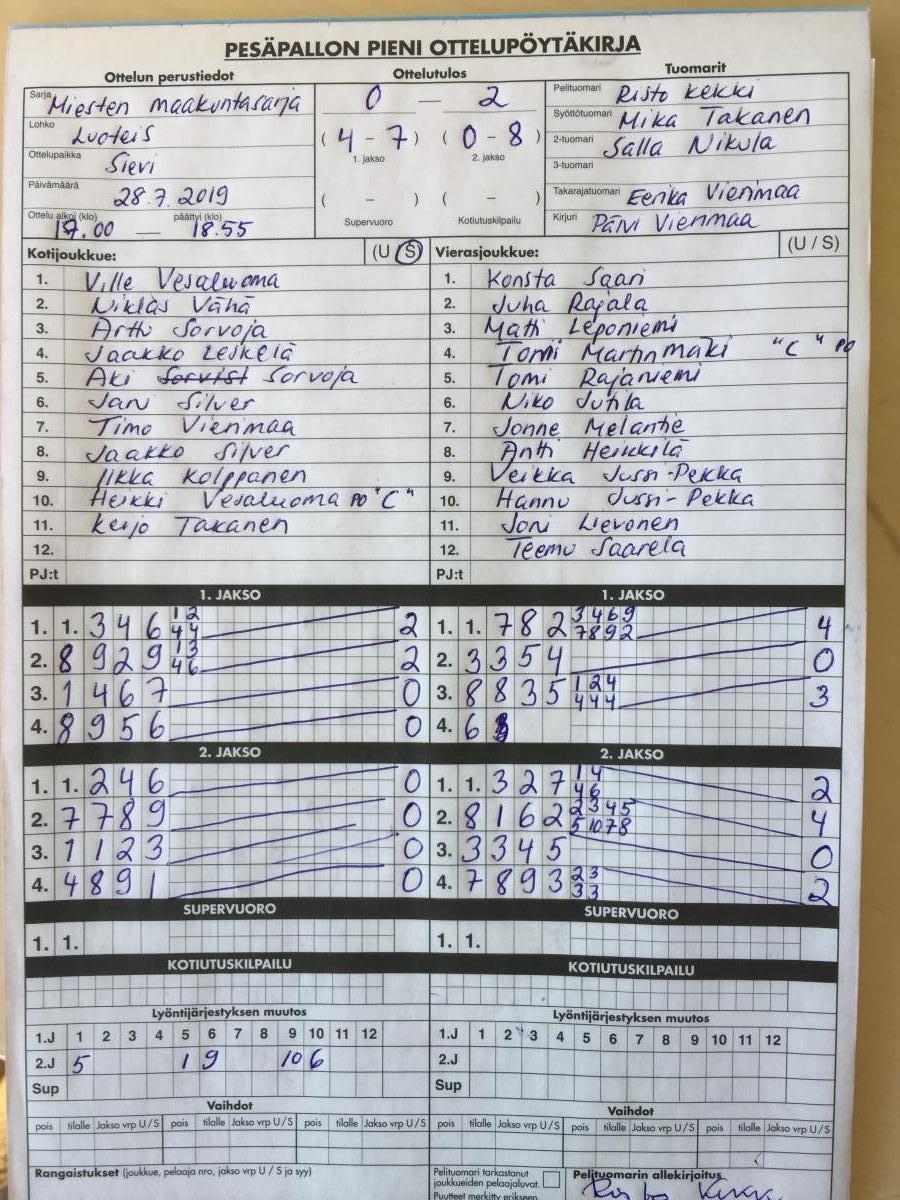 PESÄPALLON PIENI OTTELUPÖYTÄKIRJA
Ottelun perustiedot Ottelutulos Tuomarit
Sarja Miesten maakuntasarja 0 — 2 Pelituomari Risto Kekki
Lohko Luoteis ( 4 - 7 ) ( 0 - 8 ) Syöttötuomari Mika Takanen
1. jakso 2. jakso 2-tuomari Salla Nikula
Ottelupaikka Sievi 3-tuomari
Päivämäärä 28.7.2019 ( – ) ( – ) Takarajatuomari Eerika Vienmaa
Ottelu alkoi (klo) 17.00 — päättyi (klo) 18.55 Supervuoro Kotiutuskilpailu Kirjuri Päivi Vienmaa
Kotijoukkue: (U / S) Vierasjoukkue: (U / S)
1. Ville Vesaluoma 1. Konsta Saari
2. Niklas Vähä 2. Juha Rajala
3. Arttu Sorvoja 3. Matti Leponiemi
4. Jaakko Leskelä 4. Tomi Martinmäki "C" PO
5. Aki Sorvoja 5. Tomi Rajaniemi
6. Jani Silver 6. Niko Jutila
7. Timo Vienmaa 7. Jonne Melantie
8. Jaakko Silver 8. Antti Heikkilä
9. Iikka Kolppanen 9. Veikka Jussi-Pekka
10. Heikki Vesaluoma PO "C" 10. Hannu Jussi-Pekka
11. Keijo Takanen 11. Joni Lievonen
12. 12. Teemu Saarela
PJ:t PJ:t
1. JAKSO 1. JAKSO
1. 1. 3 4 6 1 2 4 4 2 1. 1. 7 8 2 3 4 6 9 7 8 9 2 4
2. 8 9 2 9 1 3 4 6 2 2. 3 3 5 4 0
3. 1 4 6 7 0 3. 8 8 3 5 1 2 4 4 4 4 3
4. 8 9 5 6 0 4. 6
2. JAKSO 2. JAKSO
1. 1. 2 4 6 0 1. 1. 3 2 7 1 4 4 6 2
2. 7 7 8 9 0 2. 8 1 6 2 2 3 4 5 5 10 7 8 4
3. 1 1 2 3 0 3. 3 3 4 5 0
4. 4 8 9 1 0 4. 7 8 9 3 2 3 3 3 2
SUPERVUORO SUPERVUORO
1. 1. 1. 1.
KOTIUTUSKILPAILU KOTIUTUSKILPAILU
Lyöntijärjestyksen muutos Lyöntijärjestyksen muutos
1.J 1 2 3 4 5 6 7 8 9 10 11 12 1.J 1 2 3 4 5 6 7 8 9 10 11 12
2.J 5 1 9 10 6 2.J
Sup Sup
Vaihdot Vaihdot
pois tilalle Jakso vrp U/S pois tilalle Jakso vrp U/S pois tilalle Jakso vrp U/S pois tilalle Jakso vrp U/S pois tilalle Jakso vrp U/S pois tilalle Jakso vrp U/S
Rangaistukset (joukkue, pelaaja nro, jakso vrp U / S ja syy) Pelituomari tarkastanut Pelituomarin allekirjoitus
joukkueiden pelaajaluvat.
Puutteet merkitty erikseen.